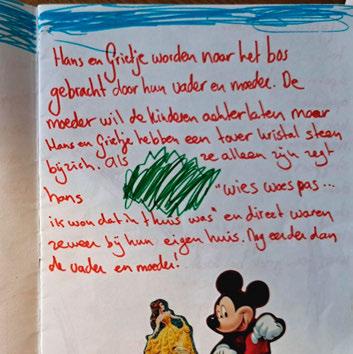 Hans en Grietje worden naar het bos
gebracht door hun vader en moeder. De
moeder wil de kinderen achterlaten maar
Hans en Grietje hebben een tover kristal steen
bij zich. Als ze alleen zijn zegt
hans "wies woes pas...
ik wou dat in thuis was" en direct waren
ze weer bij hun eigen huis. Nog eerder dan
de vader en moeder!